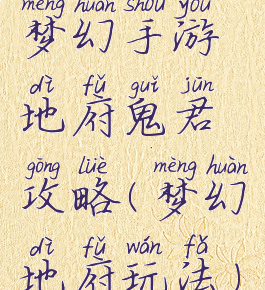 mèng huàn shǒu yóu
梦幻手游
dì fǔ guǐ jūn
地府鬼君
gōng lüè ( mèng huàn
攻略(梦幻
dì fǔ wán fǎ
地府玩法)